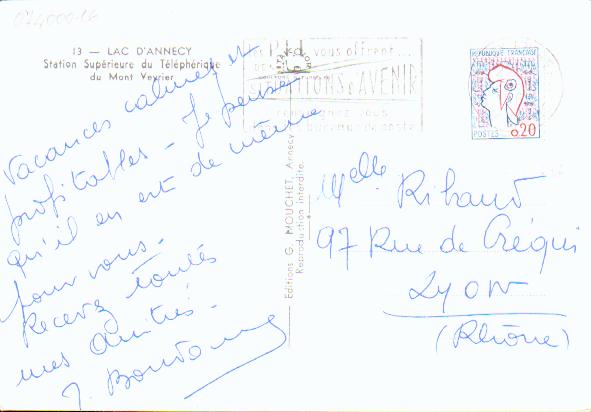 074000-16
13 — LAC D'ANNECY
Station Supérieure du Téléphérique
du Mont Veyrier
Vacances calmes et
profitables - Je pense
qu'il en est de même
pour vous.
Recevez toutes
mes amitiés.
Editions G. MOUCHET, Annecy
Reproduction interdite.
vous offrent...
D'AVENIR
vous
bureau de poste
REPUBLIQUE FRANÇAISE
POSTES 0,20
Melle Ribaud
97 Rue de Créqui
LYON
(Rhône)